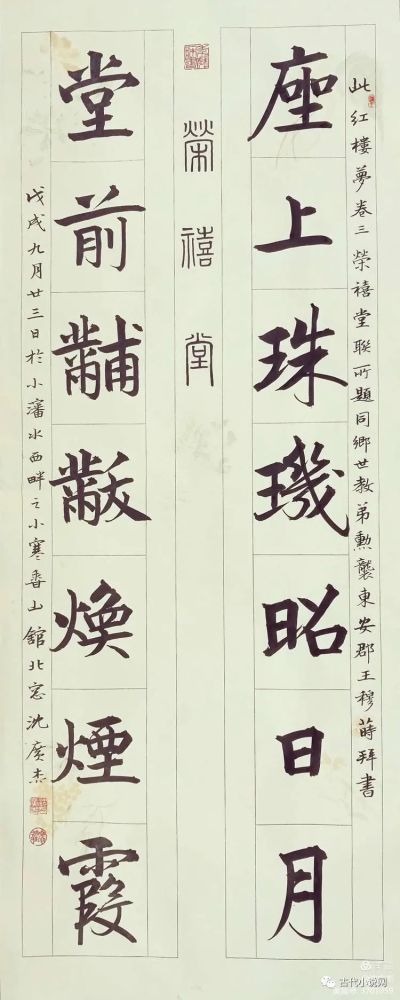 此紅樓夢卷三榮禧堂聯所題同鄉世教弟勲襲東安郡王穆蒔拜書
座上珠璣昭日月
榮禧堂
堂前黼黻煥煙霞
戊戌九月廿三日於小瀋水西畔之小寒香山館北窓沈廣杰
古代小说网